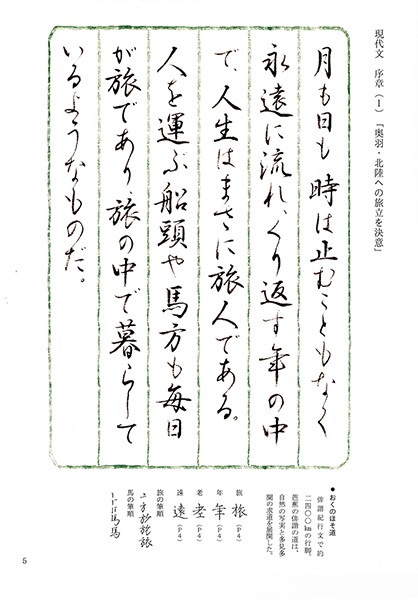 現代文 序章(1)「奥羽・北陸への旅立を決意」
月も日も 時は止むこともなく
永遠に流れ、くり返す年の中
で、人生はまさに旅人である。
人を運ぶ船頭や馬方も毎日
が旅であり、旅の中で暮らして
いるようなものだ。
●おくのほそ道
俳諧紀行文で約
二四〇〇kmの行脚、
芭蕉の俳諧の道は、
自然の写実と多見多
聞の求道を展開した。
旅 旅(P4)
年 年(P4)
老 老(P4)
遠 遠(P4)
旅の筆順
馬の筆順
5